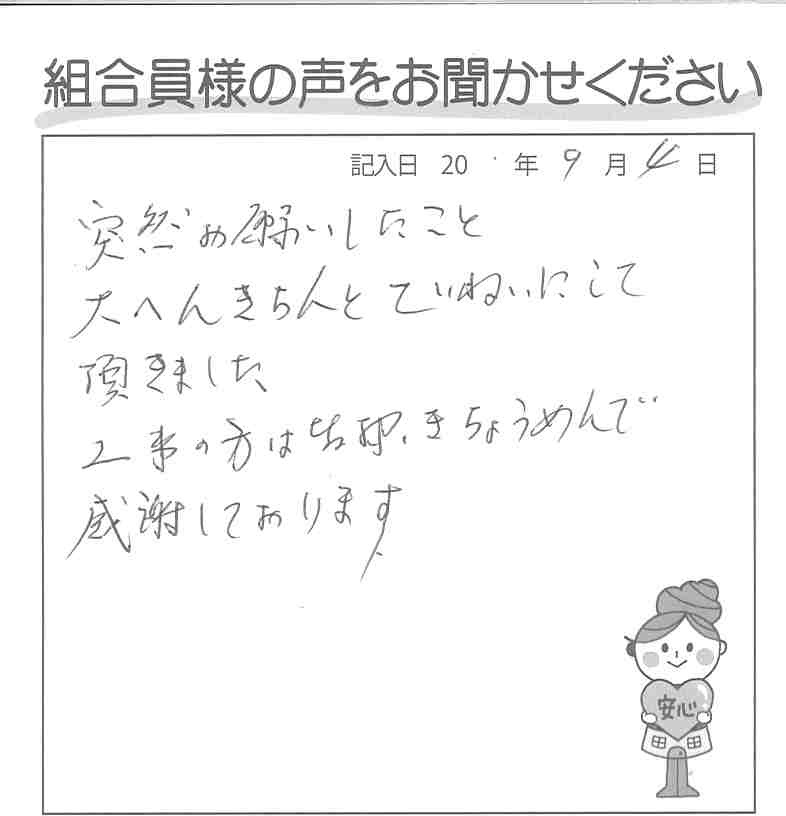 組合員様の声をお聞かせください
記入日 20 年 9 月 4 日
突然お願いしたこと
大へんきちんとていねいにして
頂きました
工事の方は皆都、きちょうめんで
感謝しております
安心